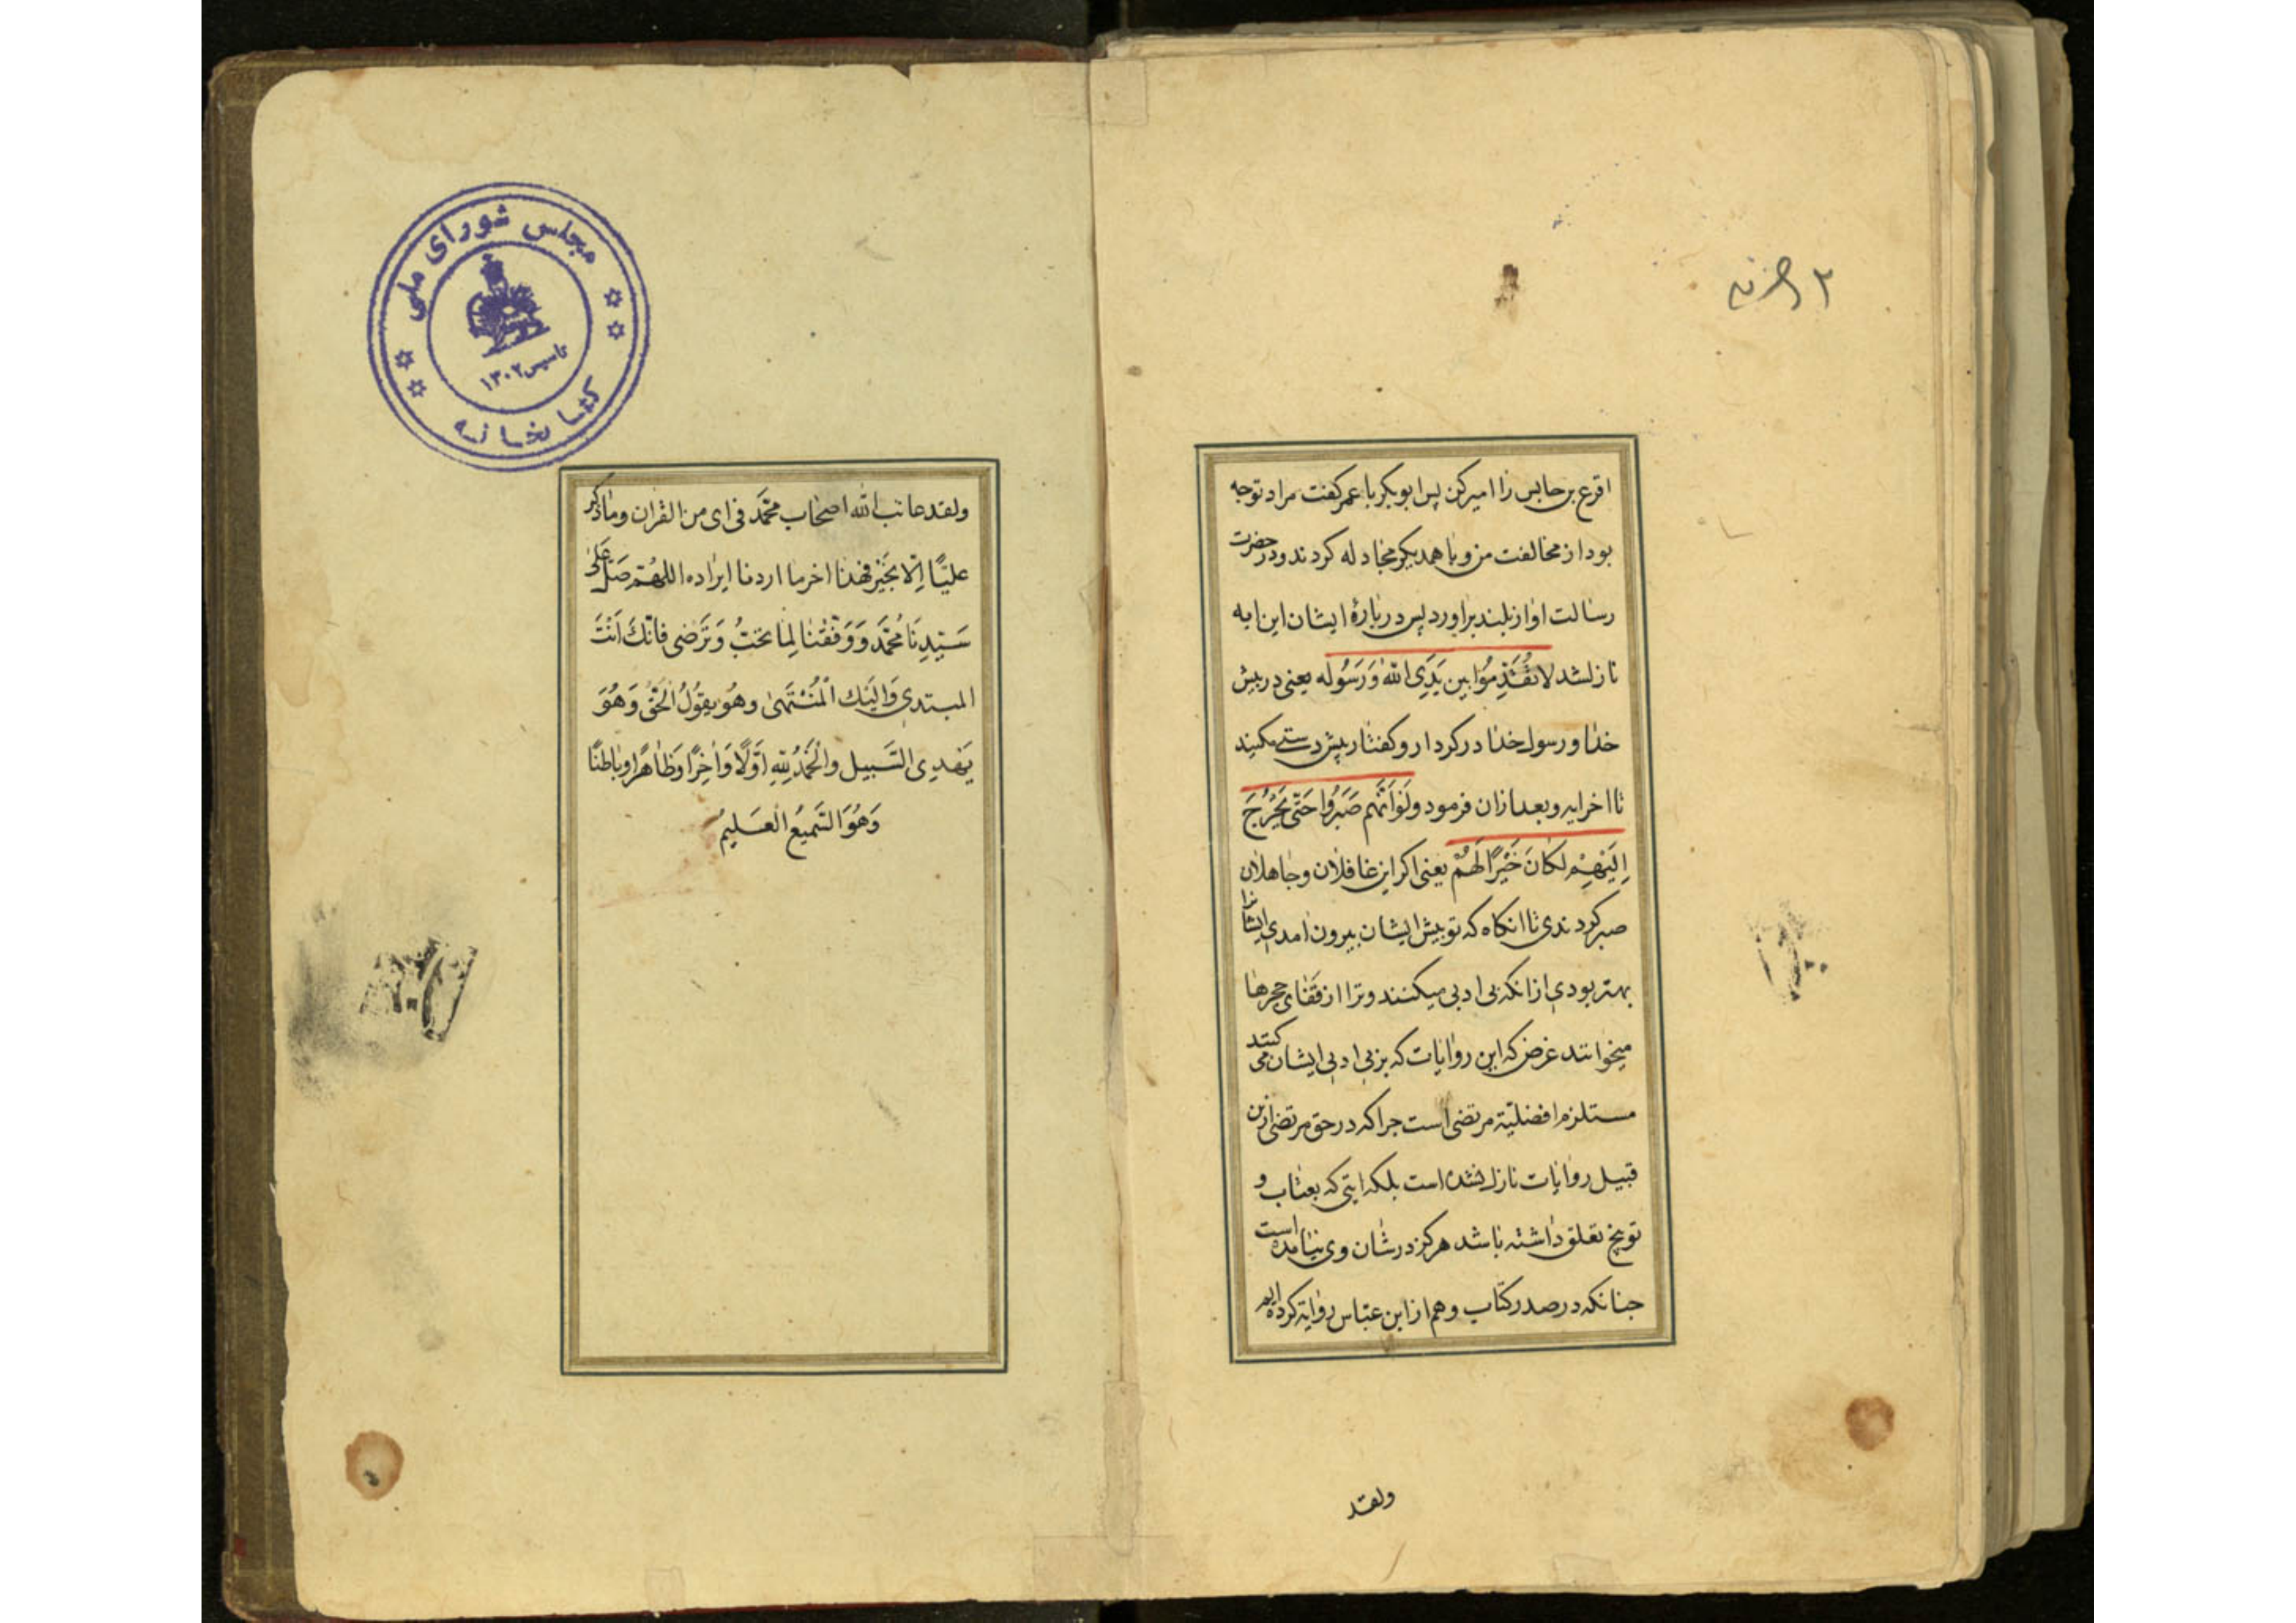 اقرع بن حابس را امیر کن پس ابو بکر با عمر کفت مراد تو جه
بود از مخالفت من و با همدیکر مجادله کردند و در حضرت
رسالت اواز بلند براوردند پس در بارهٔ ایشان این ایه
نازلشد لا تُقَدِّمُوا بین یَدَیِ الله وَرَسُوله یعنی در پیش
خدا و رسول خدا در کردار و کفتار پیش دستی مکنید
تا اخرایه و بعد ازان فرمود وَلَوْ اَنَّهُم صَبَرُوا حَتّٰی یَخْرُجَ
اِلَیْهِمْ لَکَانَ خَیْرًا لَهُمْ یعنی اکر این غافلان و جاهلان
صبر کردندی تا انکاه که تو پیش ایشان بیرون امدی ایشانرا
بهتر بودی ازانکه بی ادبی میکنند و ترا از قفای حجرها
میخوانند غرض که این روایات که بر بی ادبی ایشان می کنند
مستلزم افضلیّة مرتضی است جرا که در حق مرتضی ازین
قبیل روایات نازل نشده است بلکه ایتی که بعتاب و
توبیخ تعلق داشته باشد هرکز در شان وی نیامده است
جنانکه در صدر کتاب و هم از ابن عبّاس روایة کرده ایم
ولقد
مجلس شورای ملی
تاسیس ۱۳۰۲
کتابخانه
ولقد عاتب الله اصحاب محمَّد فی ای من القران وما ذکر
علیًّا اِلّا بخَیْرٍ فهذا اخر ما اردنا ایراده اللهُمّ صَلِّ عَلٰی
سَیِّدِنَا مُحَمَّد وَ وَفِّقْنَا لِمَا تحبُّ وَتَرْضی فانّکَ اَنْتَ
المبتدی وَاِلَیْكَ الْمُنْتَهیٰ وهُو یقُولُ الحَقُّ وَهُوَ
یَهدِی السَّبیل والحَمْدُ لِلّٰهِ اوَّلًا وَاٰخِرًا وَظَاهِرًا وباطنًا
وَهُوَ السَّمیعُ الْعَلیمُ